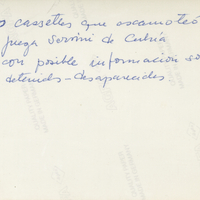 cassettes que escamoteó
juega Servini de Cubría
con posible información so
detenids-desaparecidos